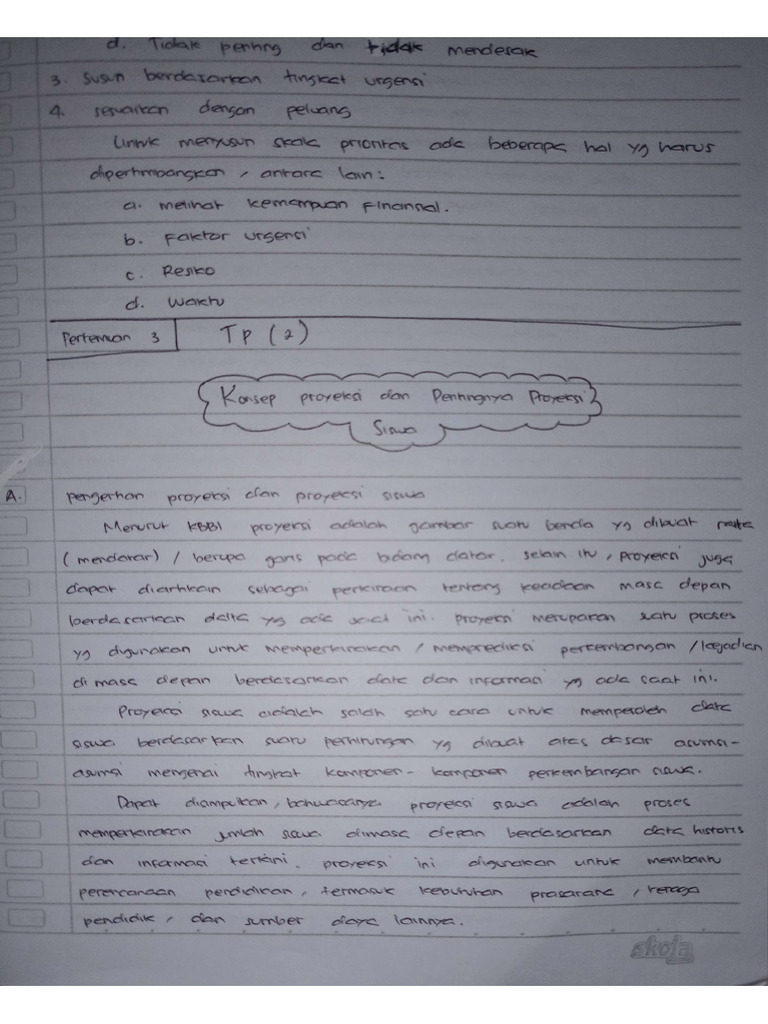 d. Tidak penting dan tidak mendesak
3. susun berdasarkan tingkat urgensi
4. sesuaikan dengan peluang
Untuk menyusun skala prioritas ada beberapa hal yg harus
dipertimbangkan, antara lain:
a. melihat kemampuan Finansial.
b. Faktor urgensi
c. Resiko
d. Waktu
Pertemuan 3 TP (2)
Konsep proyeksi dan Pentingnya Proyeksi
Siswa
A. pengertian proyeksi dan proyeksi siswa
Menurut KBBI proyeksi adalah gambar suatu benda yg dibuat rata
(mendatar) / berupa garis pada bidang datar. selain itu, proyeksi juga
dapat diartikan sebagai perkiraan tentang keadaan masa depan
berdasarkan data yg ada saat ini. proyeksi merupakan satu proses
yg digunakan untuk memperkirakan / memprediksi perkembangan / kejadian
di masa depan berdasarkan data dan informasi yg ada saat ini.
Proyeksi siswa adalah salah satu cara untuk memperoleh data
siswa berdasarkan suatu perhitungan yg dibuat atas dasar asumsi-
asumsi mengenai tingkat komponen-komponen perkembangan siswa.
Dapat disimpulkan, bahwasanya proyeksi siswa adalah proses
memperkirakan jumlah siswa dimasa depan berdasarkan data historis
dan informasi terkini. proyeksi ini digunakan untuk membantu
perencanaan pendidikan, termasuk kebutuhan prasarana, tenaga
pendidik, dan sumber daya lainnya.
skola